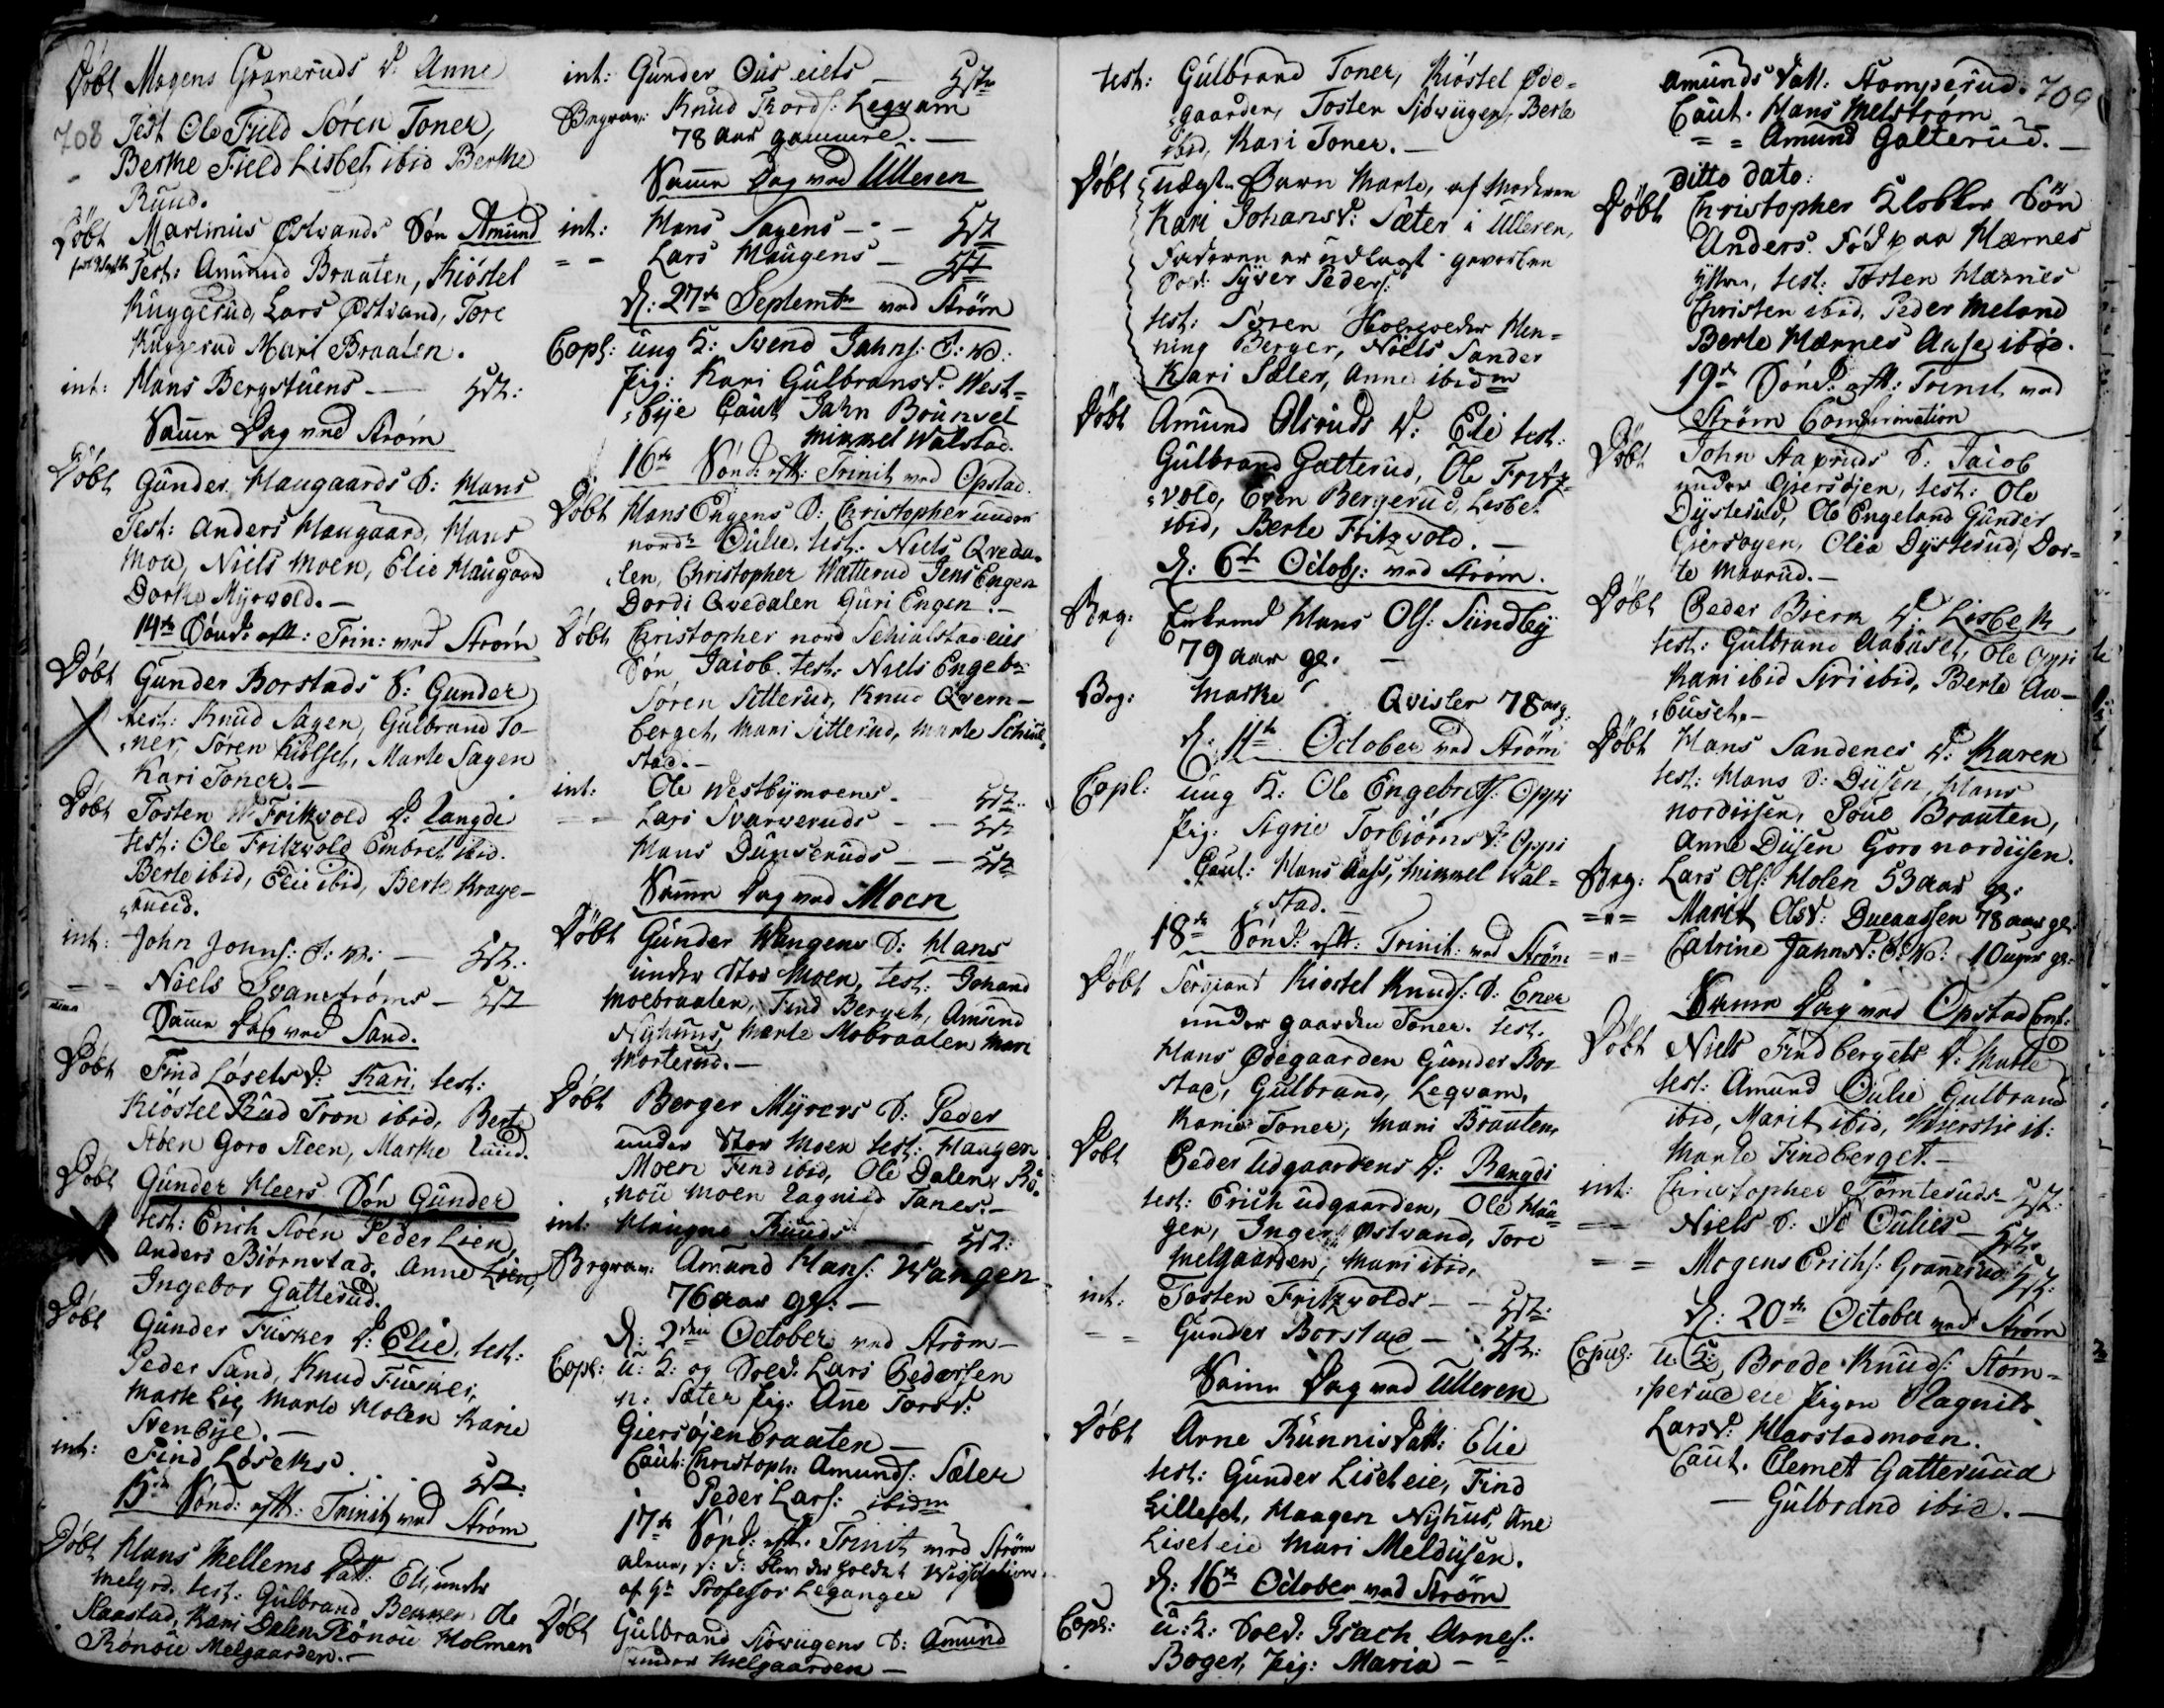 708
Døbt Mogens Graneruds D: Anne
Test Ole Field Søren Toner,
Berthe Field Lisbet ibid Berthe
Ruud.
Døbt Martinius Østvands Søn Amund
Test: Amund Braaten, Kiöstel
Kuggerud, Lars Østvand, Tore
Kuggerud Mari Braaten.
int: Hans Bergstuens —
Samme Dag ved Strøm
Døbt Gunder Haugaards S: Hans
Test: Anders Haugaard, Hans
Moen, Niels Moen, Elie Haugaard
Dorthe Myrvold. —
14de Sønd: efft: Trin: ved Strøm
Døbt Gunder Borstads S: Gunder
test: Knud Sagen, Gulbrand To-
ner, Søren Marte Sagen
Kari Toner. —
Døbt Tosten Fritzvold D: Langdi
test: Ole Fritzvold Embret ibid.
Berte ibid, Elie ibid, Berte Krage-
ruud.
int: John Johns: —
= = Niels Svanstrøms —
Samme Dag ved Sand.
Døbt Find Løsets D: Kari, test:
Kiöstel Rud Tron ibid, Berte
Støen Goro Steen, Marthe Lund.
Døbt Gunder Heers Søn Gunder
test: Erich Støen Peder Lien,
Anders Biørnstad, Anne Loen,
Ingebor Gatterud.
Døbt Gunder Fusker D: Elie, test:
Peder Sand, Knud Fusker,
Marte Lie, Marte Holen Karie
Svenbye. —
int: Find Løsets
15de Sønd: efft: Trinit ved Strøm
Døbt Hans Mellems Datt: Eli, under
Melgrd. test: Gulbrand Ole
Staastad, Kari Dalen Rønoue Holmen
Rønoue Melgaarden. —
int: Gunder Ous eiets —
Begrav: Knud Tords: Leqvam
78 aar gammel. —
Samme Dag ved Ulleren
int: Hans Sagens —
= = Lars Haugens —
D: 27de Septembr ved Strøm
Copl: ung K: Svend Jahns:
Pig: Kari Gulbransd: West-
bye Caut Jahn Brunset
Mikkel Walstad.
16de Sønd: efft: Trinit ved Opstad.
Døbt Hans Engens S: Christopher under
nordre Oulie. test: Niels Qveda-
len, Christopher Watterud Jens Engen
Dordi Qvedalen Guri Engen. —
Døbt Christopher nord Schiulstad eies
Søn Jacob. test: Niels Engebr:
Søren Sitterud, Knud Qvern-
berget, Mari Sitterud, Marte Schiul-
stad. —
int: Ole Westbymoens —
= = Lars Svarveruds —
Hans Dupseruds —
Samme Dag ved Moen
Døbt Gunder Wangens S: Hans
under Stor Moen, test: Johand
Moebraaten, Find Berget, Amund
Nyhuus, Marte Mobraaten Mari
Morterud. —
Døbt Berger Myrers S: Peder
under Stor Moen test: Haagen
Moen Find ibid, Ole Dalen, Rö-
noue Moen Ragnild Tanes. —
int: Haugne Ruuds —
Begrav: Amund Hans: Wangen
76 aar gl: —
D: 2den October ved Strøm —
Copl: u: K: og Sold: Lars Pedersen
n: Sæter Pig: Ane Torsd:
Giersøjenbraaten —
Caut: Christoph: Amunds: Sæter
Peder Lars: ibidm
17de Sønd: efft: Trinit ved Strøm
alene, holdet Visitation
af Hr Professor Leganger
Døbt Gulbrand Siøvugens S: Amund
under Melgaarden —
test: Gulbrand Toner, Kiöstel Øde-
gaarden, Tosten Siøvugen, Berte
ibid, Kari Toner. —
Døbt uægte Barn Marte, af Moderen
Kari Johansd: Sæter i Ulleren,
Faderen er udlagt
Sold: Syver Peders:
test: Søren Hen-
ning Berger, Niels Sander
Kari Sæter, Anne ibidm
Døbt Amund Olsruds D: Elie test:
Gulbrand Gatterud, Ole Fritz-
vold, Even Bergerud, Lisbet
ibid, Berte Fritzvold. —
D: 6te Octobr: ved Strøm.
Beg: Enkemd Hans Ols: Sundby
79 aar gl. —
Beg: Marthe Qvister 78 aar g:
D: 11te October ved Strøm
Copl: ung K: Ole Engebrets: Oppi
Pig: Sigrie Torbiørnsd: Oppi
Caut: Hans Aass, Mikkel Wal-
stad. —
18de Sønd: efft: Trinit: ved Strøm
Døbt Sergiant Kiøstel Knuds: S: Ener
under gaarden Toner. test.
Hans Ødegaarden Gunder Bor-
stad, Gulbrand, Leqvam,
Karie Toner, Mari Braaten,
Døbt Peder Udgaardens D: Rangdi
test: Erich Udgaarden, Ole Hau-
gen, Inger Østvand, Tore
Melgaarden, Mari ibid,
int: Tosten Fritzvolds —
= = Gunder Borstad —
Samme Dag ved Ulleren
Døbt Arne Runnis Datt: Elie
test: Gunder Liseteie, Find
Lilleset, Haagen Nyhus, Ane
Liseteie Mari Melduusen.
D: 16de October ved Strøm
Copl: u: K: Sold: Isach Arnes:
Boger, Pig: Maria —
709
Amunds Datt: Stomperud.
Caut. Hans Melstrøm
= = Amund Galterud. —
Ditto dato:
Døbt Christopher Klokker Søn
Anders. Fød paa Hærnes
test: Tosten Hærnes
Christen ibid, Peder Meland
Berte Hærnes Aase ibid.
19de Sønd: efft: Trinit ved
Strøm Confirmation
Døbt John Aapruds S: Jacob
under Giersøjen, test: Ole
Dysterud, Ole Engeland Gunder
Giersøyen, Olea Dysterud, Dor-
te Maarud. —
Døbt Peder Biern D: Lisbeth
test: Gulbrand Aabuset, Ole Oppi
Kari ibid Siri ibid, Berte Aa-
buset. —
Døbt Hans Sandenes D: Karen
test: Hans S: Duusen, Hans
norduusen, Poul Braaten,
Anne Duusen Goro norduusen.
Beg: Lars Ols: Holen 53 aar gl.
= " = Marit Olsd: Dueaassen 78 aar gl.
= " = Catrine Jahnsd: 10 uger gl.
Samme Dag ved Opstad Conf:
Døbt Niels Findbergets D: Marte
test: Amund Oulie Gulbrand
ibid, Marit ibid, Kierstie ib:
Marte Findberget. —
int: Christopher Tømteruds —
= = Niels S: Oulies —
= = Mogens Erichs: Granerud
D: 20de October ved Strøm
Copul: u. K: Brede Knuds: Støm-
perud eie Pigen Ragnild
Larsd: Harstadmoen.
Caut. Clemet Gatteruud
— Gulbrand ibid. —